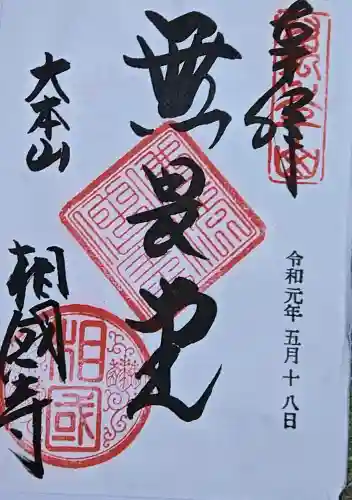 奉拝
令和元年五月十八日
無畏堂
大本山
相國寺
相國